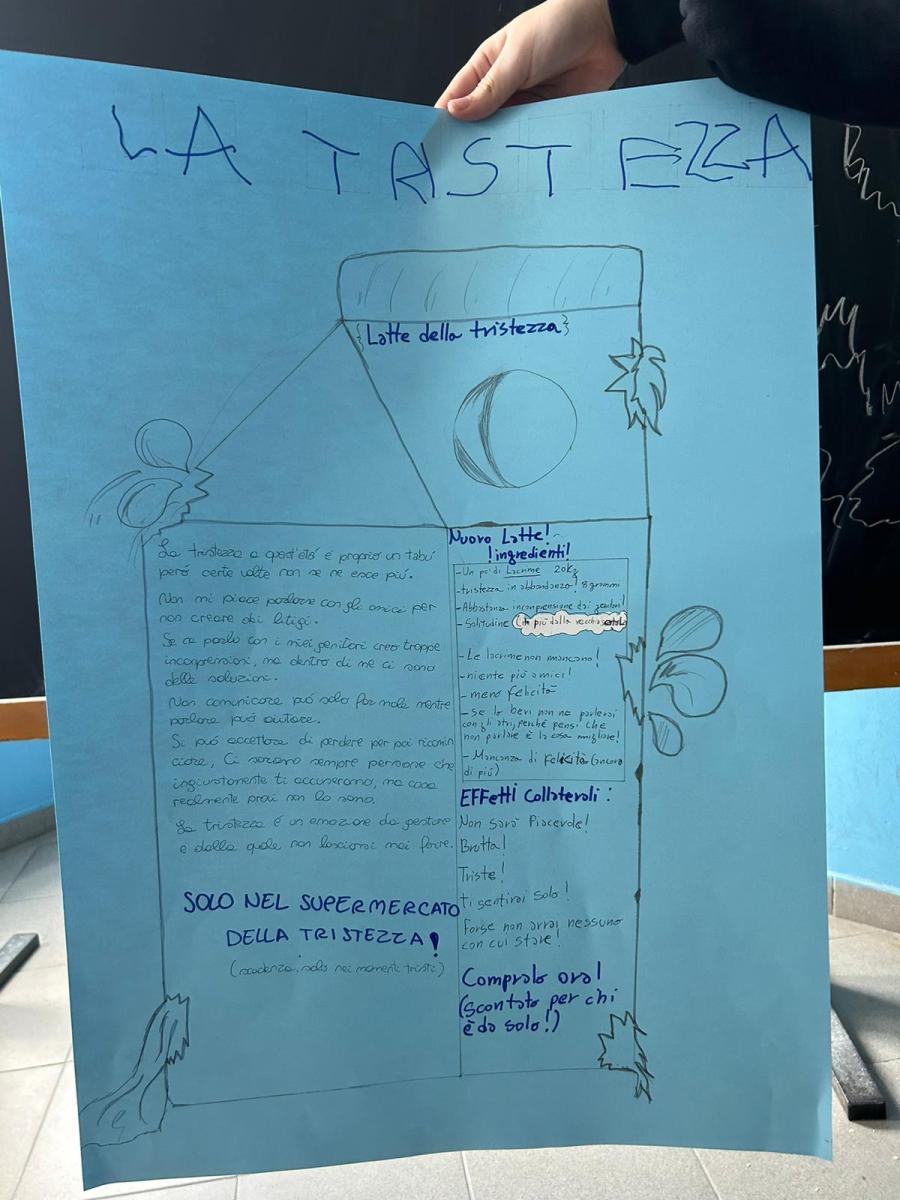 LA TRISTEZZA
{Latte della tristezza}
La tristezza a quest'etá é proprio un tabú
peró certe volte non se ne esce piú.
Non mi piace parlare con gli amici per
non creare dei litigi.
Se ne parlo con i miei genitori creo troppe
incomprensioni, ma dentro di me ci sono
delle soluzioni.
Non comunicare puó solo far male mentre
parlare puó aiutare.
Si puó accettare di perdere per poi ricomin
ciare, Ci saranno sempre persone che
ingiustamente ti accuseranno, ma cosa
realmente provi non lo sanno.
La tristezza é un emozione da gestire
e dalla quale non lasciarsi mai ferire.
SOLO NEL SUPERMERCATO
DELLA TRISTEZZA!
(scadenza: solo nei momenti tristi)
Nuovo Latte!
!ingredienti!
-Un po' di Lacrime 20Kg
-tristezza in abbondanza! 8 grammi
-Abbastanza incomprensione dai genitori!
-Solitudine (in più dalla vecchia
-Le lacrime non mancano!
-niente più amici!
-meno felicità
-se lo bevi non ne parlerai
con gli altri, perché pensi che
non parlare è la cosa migliore!
-Mancanza di felicità (ancora
di più)
EFFetti Collaterali:
Non sarà Piacevole!
Brutta!
Triste!
ti sentirai solo!
Forse non avrai nessuno
con cui stare!
Compralo ora!
(scontato per chi
è da solo!)